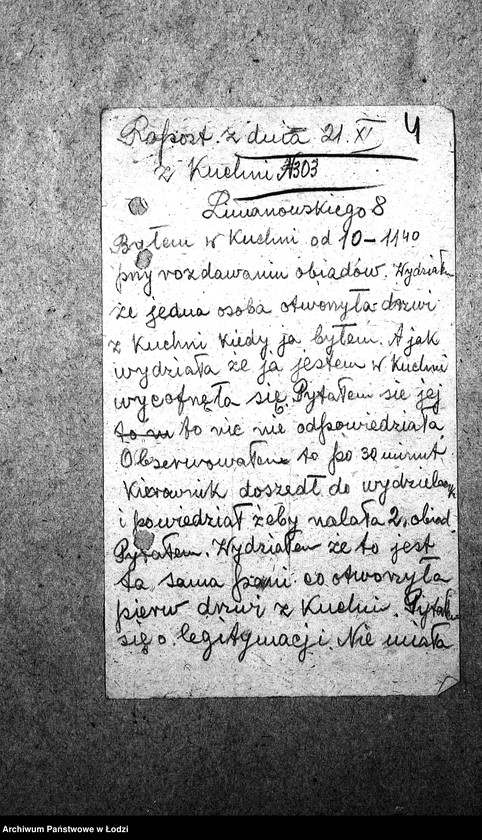 4
Raport z dnia 21. XI
z Kuchni N303
Limanowskiego 8
Byłem w Kuchni od 10-11 40
pny rozdawaniu obiadów. Wydziałem
że jedna osoba otwonyła drzwi
z Kuchni kiedy ja byłem. A jak
wydziała że ja jestem w Kuchni
wycofnęła się. Pytałem sie jej
to nic nie odpowiedziała
Obserwowałem to po 30 minut
Kierownik doszedł do
i powiedział żeby nalała 2. obiad
Pytałem. Wydziałem że to jest
ta sama pani co otwonyła
pierw drzwi z Kuchni. Pytałem
się o legitymacji. Nie miała
Archiwum Państwowe w Łodzi